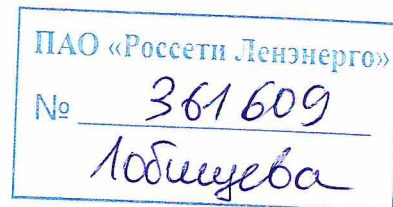 ПАО «Россети Ленэнерго»
№ 361609
Лобищева